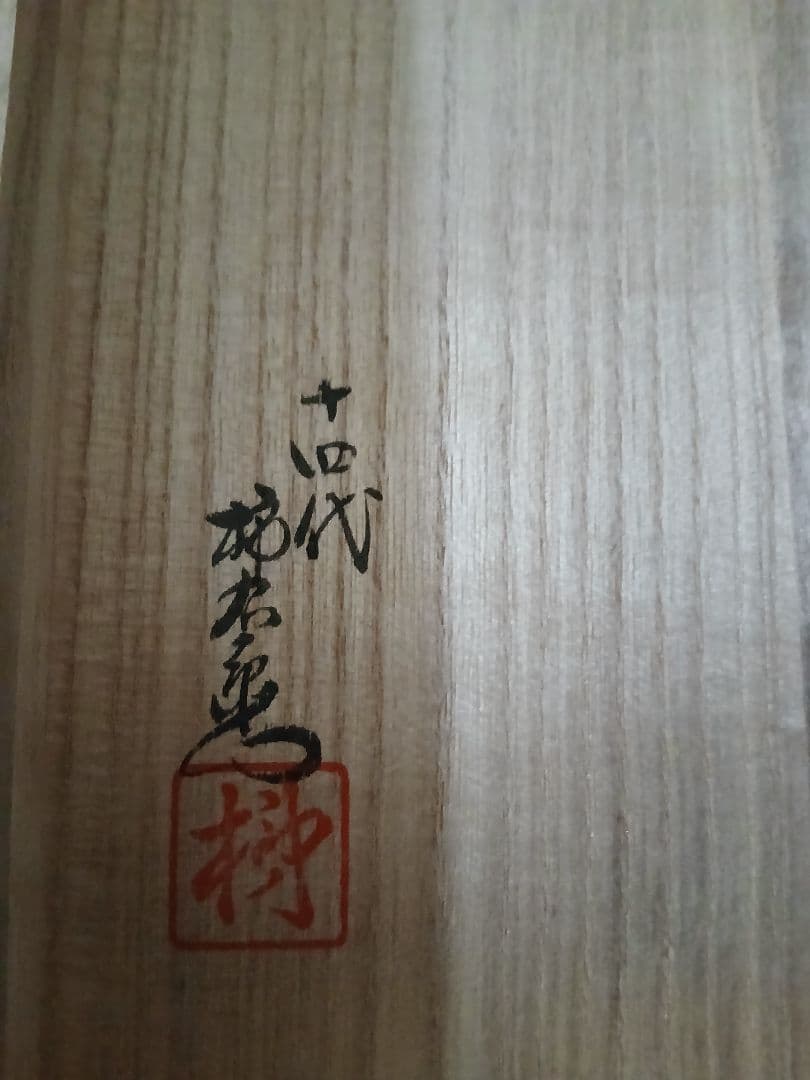 十四代
柿右衛門